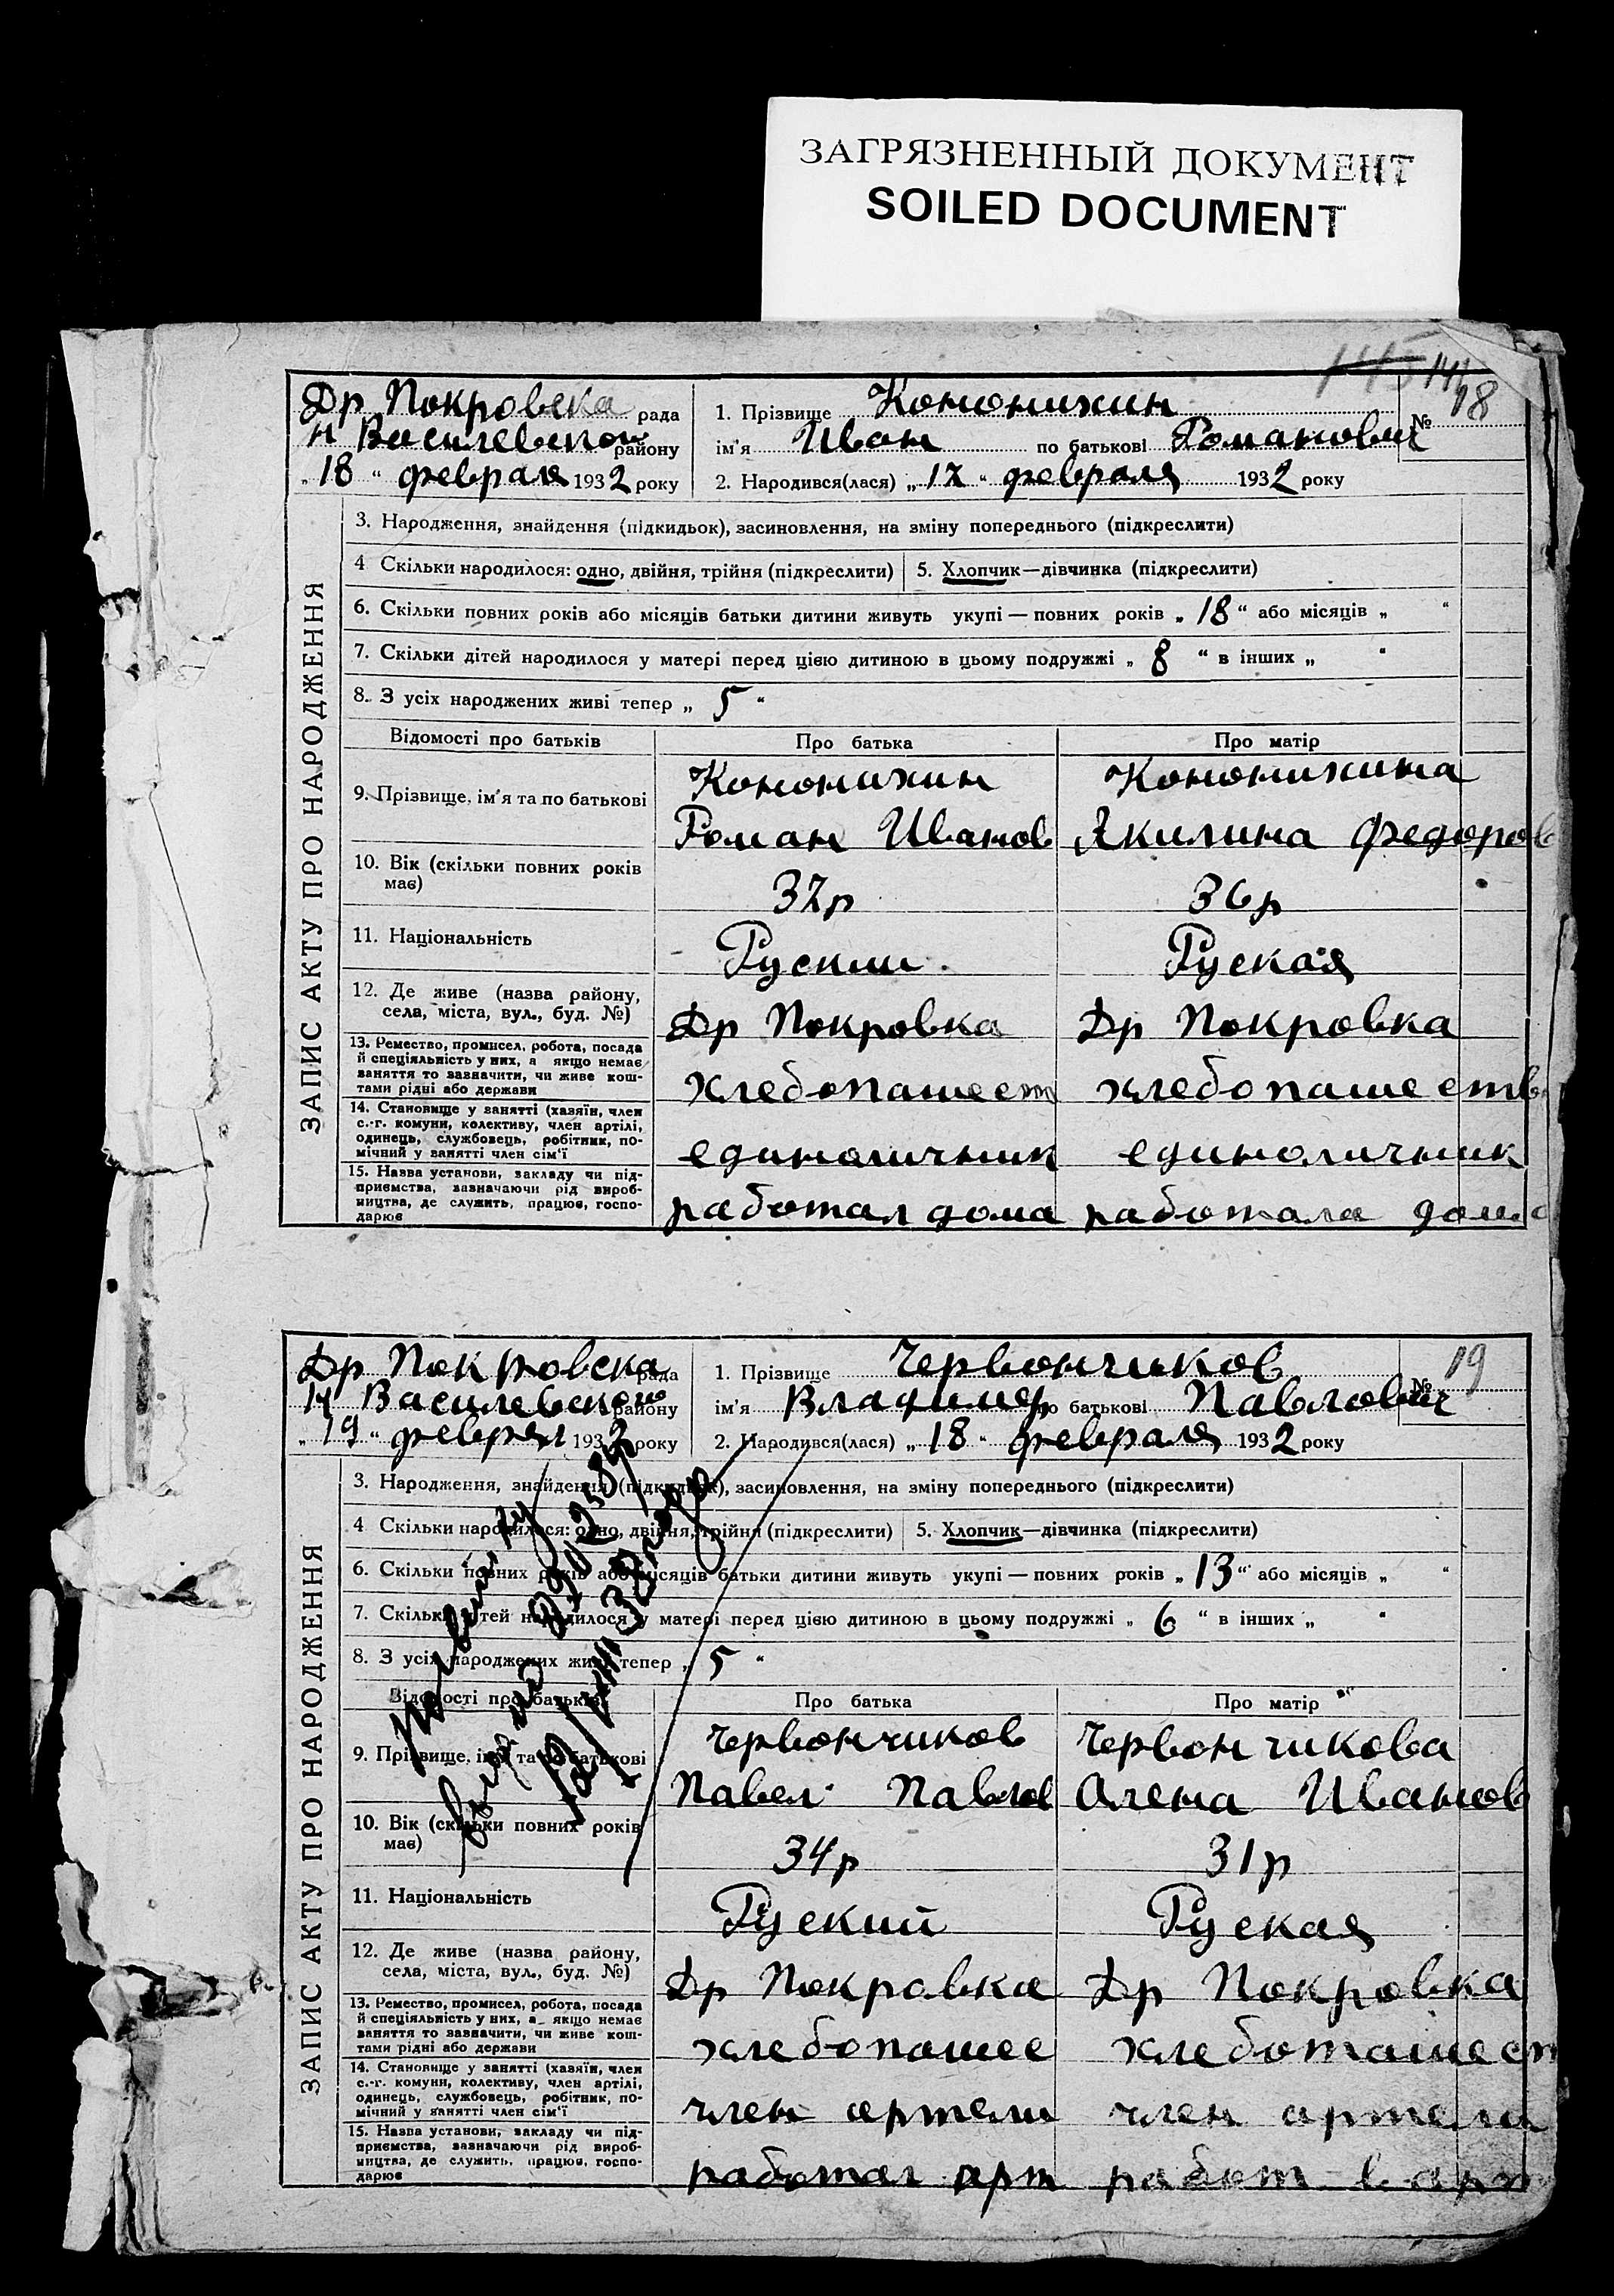 ЗАГРЯЗНЕННЫЙ ДОКУМЕНТ
SOILED DOCUMENT
145 141
Др Покровска рада
н Василевской району
„ 18 “ февраля 1932 року
1. Прізвище Кононихин
№ 18
ім'я Иван по батькові Романович
2. Народився(лася) „ 17 “ февраля 1932 року
ЗАПИС АКТУ ПРО НАРОДЖЕННЯ
3. Народження, знайдення (підкидьок), засиновлення, на зміну попереднього (підкреслити)
4 Скільки народилося: одно, двійня, трійня (підкреслити) 5. Хлопчик—дівчинка (підкреслити)
6. Скільки повних років або місяців батьки дитини живуть укупі — повних років „ 18 “ або місяців „ “
7. Скільки дітей народилося у матері перед цією дитиною в цьому подружжі „ 8 “ в інших „ “
8. З усіх народжених живі тепер „ 5 “
Відомості про батьків Про батька Про матір
9. Прізвище, ім'я та по батькові
Кононихин Кононихина
Роман Иванов Якилина Федоров
10. Вік (скільки повних років має)
37р 36р
11. Національність
Руский Руская
12. Де живе (назва району, села, міста, вул., буд. №)
Др Покровка Др Покровка
13. Ремество, промисел, робота, посада
й спеціяльність у них, а якщо немає
заняття то зазначити, чи живе кош-
тами рідні або держави
хлебопашест хлебопашеств
14. Становище у занятті (хазяїн, член
с.-г. комуни, колективу, член артілі,
одинець, службовець, робітник, по-
мічний у занятті член сім'ї
единоличник единоличник
15. Назва установи, закладу чи під-
приємства, зазначаючи рід вироб-
ництва, де служить, працює, госпо-
дарює
работал дома работала дома
Др Покровска рада
н Василевской району
„ 19 “ феврал 1932 року
1. Прізвище Червончиков
№ 19
ім'я Владимер по батькові Павлович
2. Народився(лася) „ 18 “ февраля 1932 року
ЗАПИС АКТУ ПРО НАРОДЖЕННЯ
3. Народження, знайдення (підкидьок), засиновлення, на зміну попереднього (підкреслити)
4 Скільки народилося: одно, двійня, трійня (підкреслити) 5. Хлопчик—дівчинка (підкреслити)
6. Скільки повних років або місяців батьки дитини живуть укупі — повних років „ 13 “ або місяців „ “
7. Скільки дітей народилося у матері перед цією дитиною в цьому подружжі „ 6 “ в інших „ “
8. З усіх народжених живі тепер „ 5 “
Відомості про батьків Про батька Про матір
9. Прізвище, ім'я та по батькові
Червончиков Червончикова
Павел Павлов Олена Иванов
10. Вік (скільки повних років має)
34р 31р
11. Національність
Руский Руская
12. Де живе (назва району, села, міста, вул., буд. №)
Др Покровка Др Покровка
13. Ремество, промисел, робота, посада
й спеціяльність у них, а якщо немає
заняття то зазначити, чи живе кош-
тами рідні або держави
хлебопашес хлебопашест
14. Становище у занятті (хазяїн, член
с.-г. комуни, колективу, член артілі,
одинець, службовець, робітник, по-
мічний у занятті член сім'ї
член артели член артели
15. Назва установи, закладу чи під-
приємства, зазначаючи рід вироб-
ництва, де служить, працює, госпо-
дарює
работал арт работ в арт